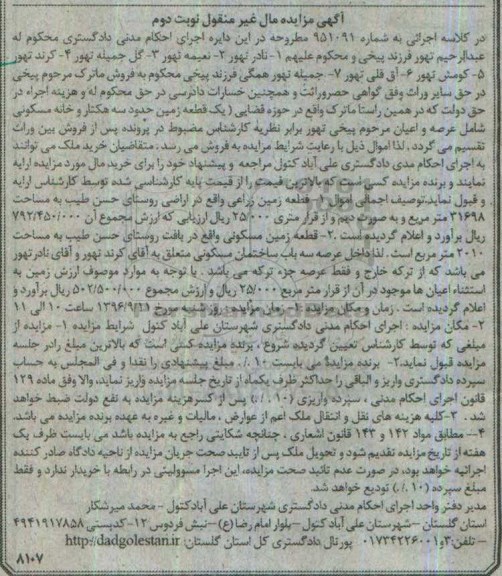 آگهی مزایده مال غیر منقول نوبت دوم
در کلاسه اجرائی به شماره ۹۵۱۰۹۱ مطروحه در این دایره اجرای احکام مدنی دادگستری محکوم له
عبدالرحیم تهور فرزند پیخی و محکوم علیهم ۱- نادر تهور ۲- نعیمه تهور ۳- گل جمیله تهور ۴- کرند تهور
۵- کومش تهور ۶- آق قلی تهور ۷- جمیله تهور همگی فرزند پیخی محکوم به فروش ماترک مرحوم پیخی
در حق سایر وراث وفق گواهی حصروراثت و همچنین خسارات دادرسی در حق محکوم له و هزینه اجراء در
حق دولت که در همین راستا ماترک واقع در حوزه قضایی ( یک قطعه زمین حدود سه هکتار و خانه مسکونی
شامل عرصه و اعیان مرحوم پیخی تهور برابر نظریه کارشناس مضبوط در پرونده پس از فروش بین وراث
تقسیم می گردد . لذا اموال ذیل با رعایت شرایط مزایده به فروش می رسد . متقاضیان خرید ملک می توانند
به اجرای احکام مدنی دادگستری علی آباد کتول مراجعه و پیشنهاد خود را برای خرید مال مورد مزایده ارایه
نمایند و برنده مزایده کسی است که بالاترین قیمت را از قیمت پایه کارشناسی شده توسط کارشناس ارایه
و قبول نماید.توصیف اجمالی اموال :۱- قطعه زمین زراعی واقع در اراضی روستای حسن طیب به مساحت
۳۱۶۹۸ متر مربع و به صورت دیم و از قرار متری ۲۵/۰۰۰ ریال ارزیابی که ارزش مجموع آن ۷۹۲/۴۵۰/۰۰۰
ریال برآورد و اعلام گردیده است .۲- قطعه زمین مسکونی واقع در بافت روستای حسن طیب به مساحت
۲۰۱۰ متر مربع است . لذا داخل عرصه سه باب ساختمان مسکونی متعلق به آقای کرند تهور و آقای نادر تهور
می باشد که از ترکه خارج و فقط عرصه جزء ترکه می باشد . با توجه به موارد موصوف ارزش زمین به
استثناء اعیان ها موجود در آن از قرار متر مربع ۲۵/۰۰۰ ریال و ارزش مجموع ۵۰۲/۵۰۰/۰۰۰ ریال برآورد و
اعلام گردیده است . زمان و مکان مزایده :۱- زمان مزایده : روز شنبه مورخ ۱۳۹۶/۹/۱۱ ساعت ۱۰ الی ۱۱
۲- مکان مزایده : اجرای احکام مدنی دادگستری شهرستان علی آباد کتول شرایط مزایده ۱- مزایده از
مبلغی که توسط کارشناس تعیین گردیده شروع ، برنده مزایده کسی است که بالاترین مبلغ رادر جلسه
مزایده قبول نماید.۲- برنده مزایده می بایست ۱۰٪ مبلغ پیشنهادی را نقدا و فی المجلس به حساب
سپرده دادگستری واریز و الباقی را حداکثر ظرف یکماه از تاریخ جلسه مزایده واریز نماید، والا وفق ماده ۱۲۹
قانون اجرای احکام مدنی ، سپرده واریزی (۱۰٪) پس از کسرهزینه مزایده به نفع دولت ضبط خواهد
شد . ۳-کلیه هزینه های نقل و انتقال ملک اعم از عوارض ، مالیات و غیره به عهده برنده مزایده می باشد.
۴-- مطابق مواد ۱۴۲ و ۱۴۳ قانون اشعاری ، چنانچه شکایتی راجع به مزایده باشد می بایست ظرف یک
هفته از تاریخ مزایده تقدیم شود و تحویل ملک پس از تایید صحت جریان مزایده از ناحیه دادگاه صادر کننده
اجرائیه خواهد بود، در صورت عدم تائید صحت مزایده، این اجرا مسوولیتی در رابطه با خریدار ندارد و فقط
مبلغ سپرده (۱۰٪) تودیع خواهد شد.
مدیر دفتر واحد اجرای احکام مدنی دادگستری شهرستان علی آبادکتول - محمد میرشکار
استان گلستان –شهرستان علی آباد کتول –بلوار امام رضا(ع)–نبش فردوس ۱۲-کدپستی ۴۹۴۱۹۱۷۸۵۸
– تلفن:۳و۰۱۷۳۴۲۲۶۰۰۱ پورتال دادگستری کل استان گلستان: http://dadgolestan.ir
۸۱۰۷